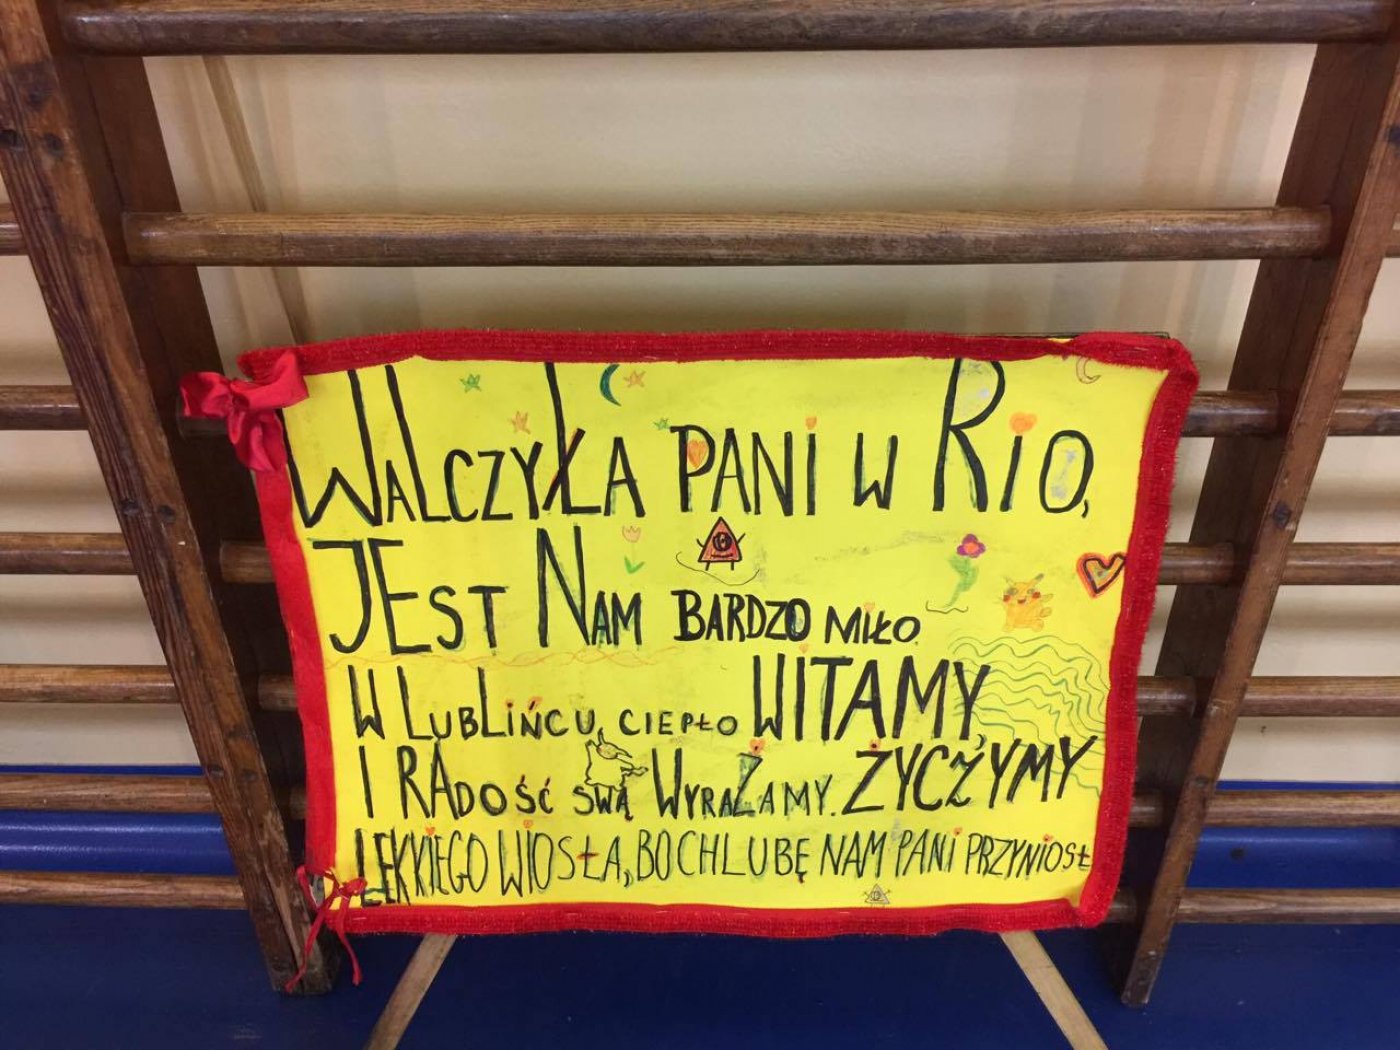 WALCZYŁA PANI W RIO,
JEST NAM BARDZO MIŁO
W LUBLIŃCU CIEPŁO WITAMY,
I RADOŚĆ SWĄ WYRAŻAMY. ŻYCŻYMY
LEKKIEGO WIOSŁA, BO CHLUBĘ NAM PANI PRZYNIOSŁ